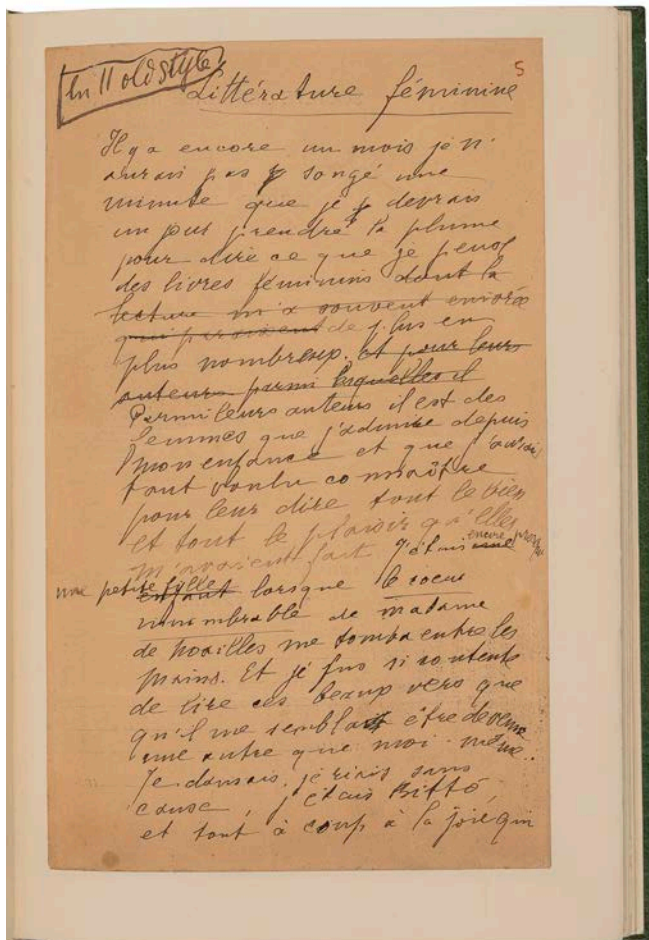 en 11 old style
5
Littérature féminine
Il y a encore un mois je n'
aurais pas songé une
minute que je devrais
un jour prendre la plume
pour dire ce que je pense
des livres féminins dont la
lecture m'a souvent enivrée
qui paraissent de plus en
plus nombreux. et pour leurs
auteurs parmi lesquelles il
Parmi leurs auteurs il est des
femmes que j'admire depuis
mon enfance et que j'aurais
tant voulu connaître
pour leur dire tout le bien
et tout le plaisir qu'elles
m'avaient fait. J'étais encore presque
une petite fille enfant lorsque le coeur
innombrable de madame
de Noailles me tomba entre les
mains. Et je fus si contente
de lire ces beaux vers que
qu'il me semblait être devenue
une autre que moi-même.
Je dansais, je riais sans
cause, j'étais Bittô,
et tout à coup à la joie qui